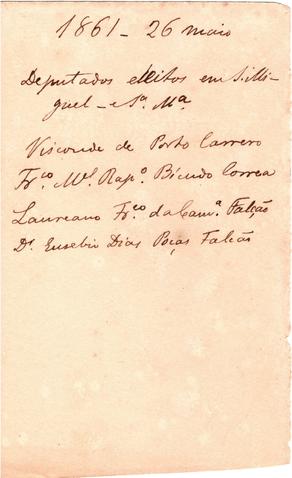 1861 - 26 maio
Deputados elleitos em S. Mi-
guel - e Sª. Mª
Visconde de Porto Carrero
Frco. Mel. Rapº. Bicudo Correa
Laureano Frco da Camª. Falcão
Dr. Eusebio Dias Poças Falcão